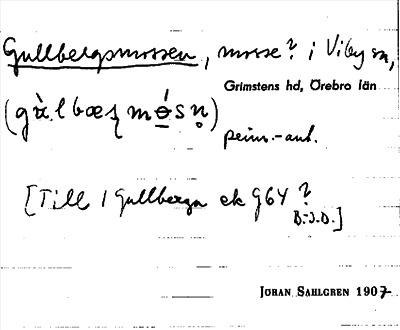 Gullbergsmossen, mosse? i Viby sn,
Grimstens hd, Örebro län
(gὰlbæʂmósn̥)
prim.-ant.
[Till 1 Gullberga ek G64 ?
B.J.D.]
JOHAN SAHLGREN 1907